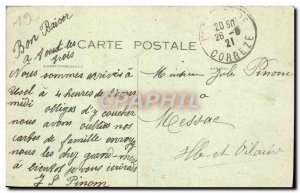 19
Bon Baiser
à tout les
trois
CARTE POSTALE
CORRESPONDANCE
20 50
26 - 8
21
CORREZE
Nous sommes arrivés à
Ussel à 4 heures de l'après
midi obligés d'y coucher
nous avons oublié nos
cartes de famille envoyez
nous les chez grand-mère
à bientôt je vous écrirais
J P Pinom
Monsieur Jules Pinom
à
Messac
Ille et Vilaine